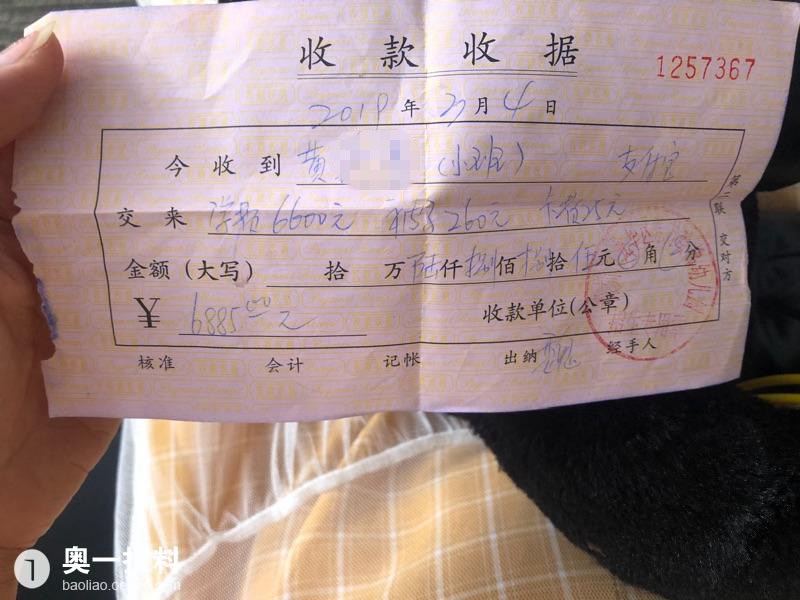 收款收据
1257367
2019年 月4日
今收到 黄 (小 班) 支付宝
交来 学费6600元 260元 卡费25元
第二联 交对方
金额(大写) 拾 万陆仟捌佰捌拾伍元 角 分
¥ 6885.00元 收款单位(公章)
核准 会计 记帐 出纳 经手人
奥一报料
baoliao.oe